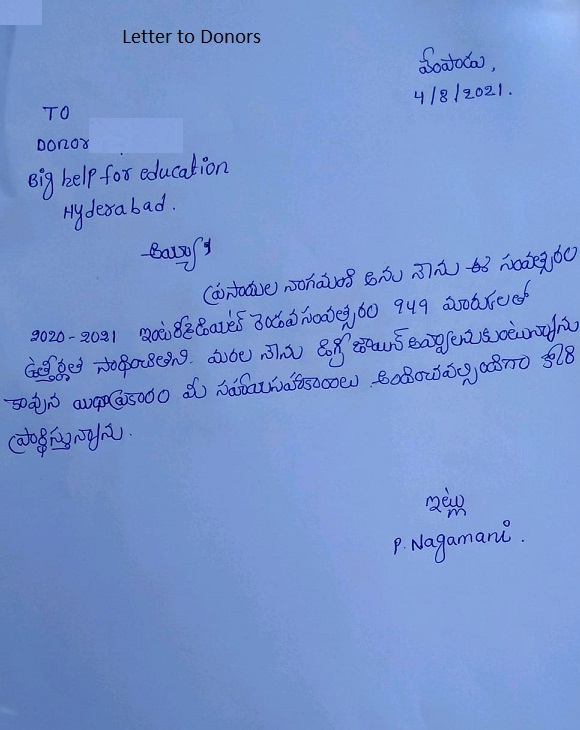 Letter to Donors
వేంపాడు,
4/8/2021.
TO
DONOR
Big help for education
Hyderabad.
అయ్యా,
ప్రసాదుల నాగమణి అను నేను ఈ సంవత్సరం
2020-2021 ఇంటర్మీడియేట్ రెండవ సంవత్సరం 949 మార్కులతో
ఉత్తీర్ణత సాధించితిని. మరల నేను డిగ్రీ జాయిన్ అవ్వాలనుకుంటున్నాను
కావున యధాప్రకారం మీ సహాయసహకారాలు అందించవలస్సిందిగా కోరి
ప్రార్థిస్తున్నాను.
ఇట్లు
P. Nagamani.